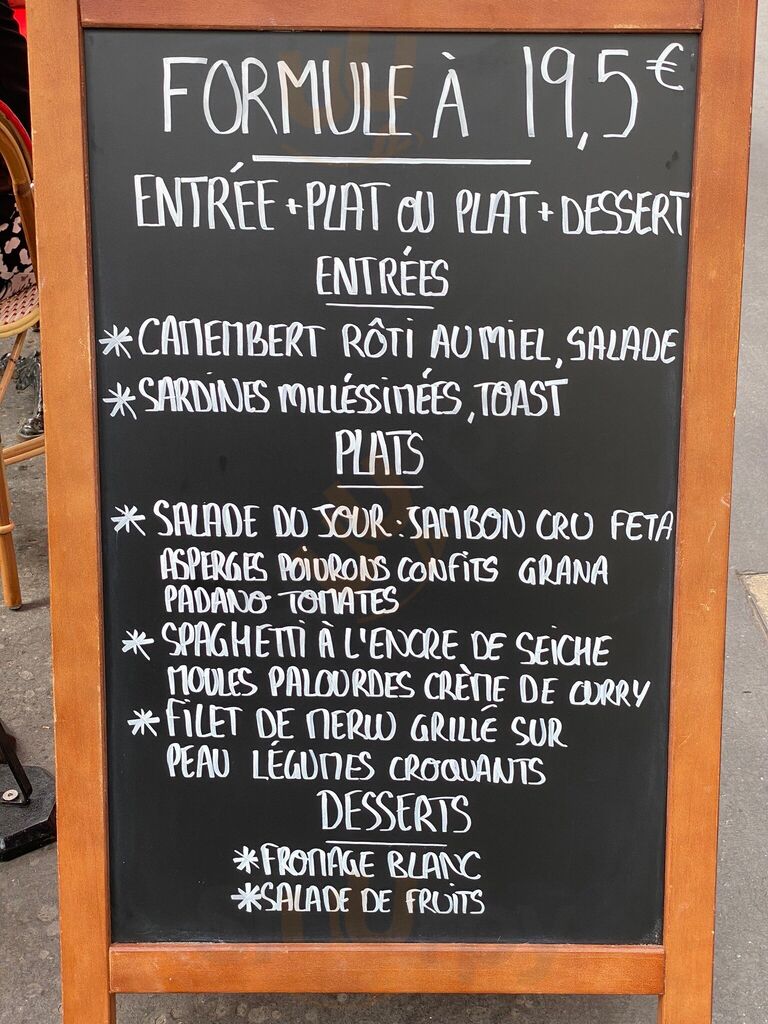 FORMULE À 19,5€
ENTRÉE + PLAT OU PLAT + DESSERT
ENTRÉES
* CAMEMBERT RÔTI AU MIEL, SALADE
* SARDINES MILLÉSSIMÉES, TOAST
PLATS
* SALADE DU JOUR : JAMBON CRU FETA
ASPERGES POIVRONS CONFITS GRANA
PADANO TOMATES
* SPAGHETTI À L'ENCRE DE SEICHE
MOULES PALOURDES CRÈME DE CURRY
* FILET DE MERLU GRILLÉ SUR
PEAU LÉGUMES CROQUANTS
DESSERTS
* FROMAGE BLANC
* SALADE DE FRUITS